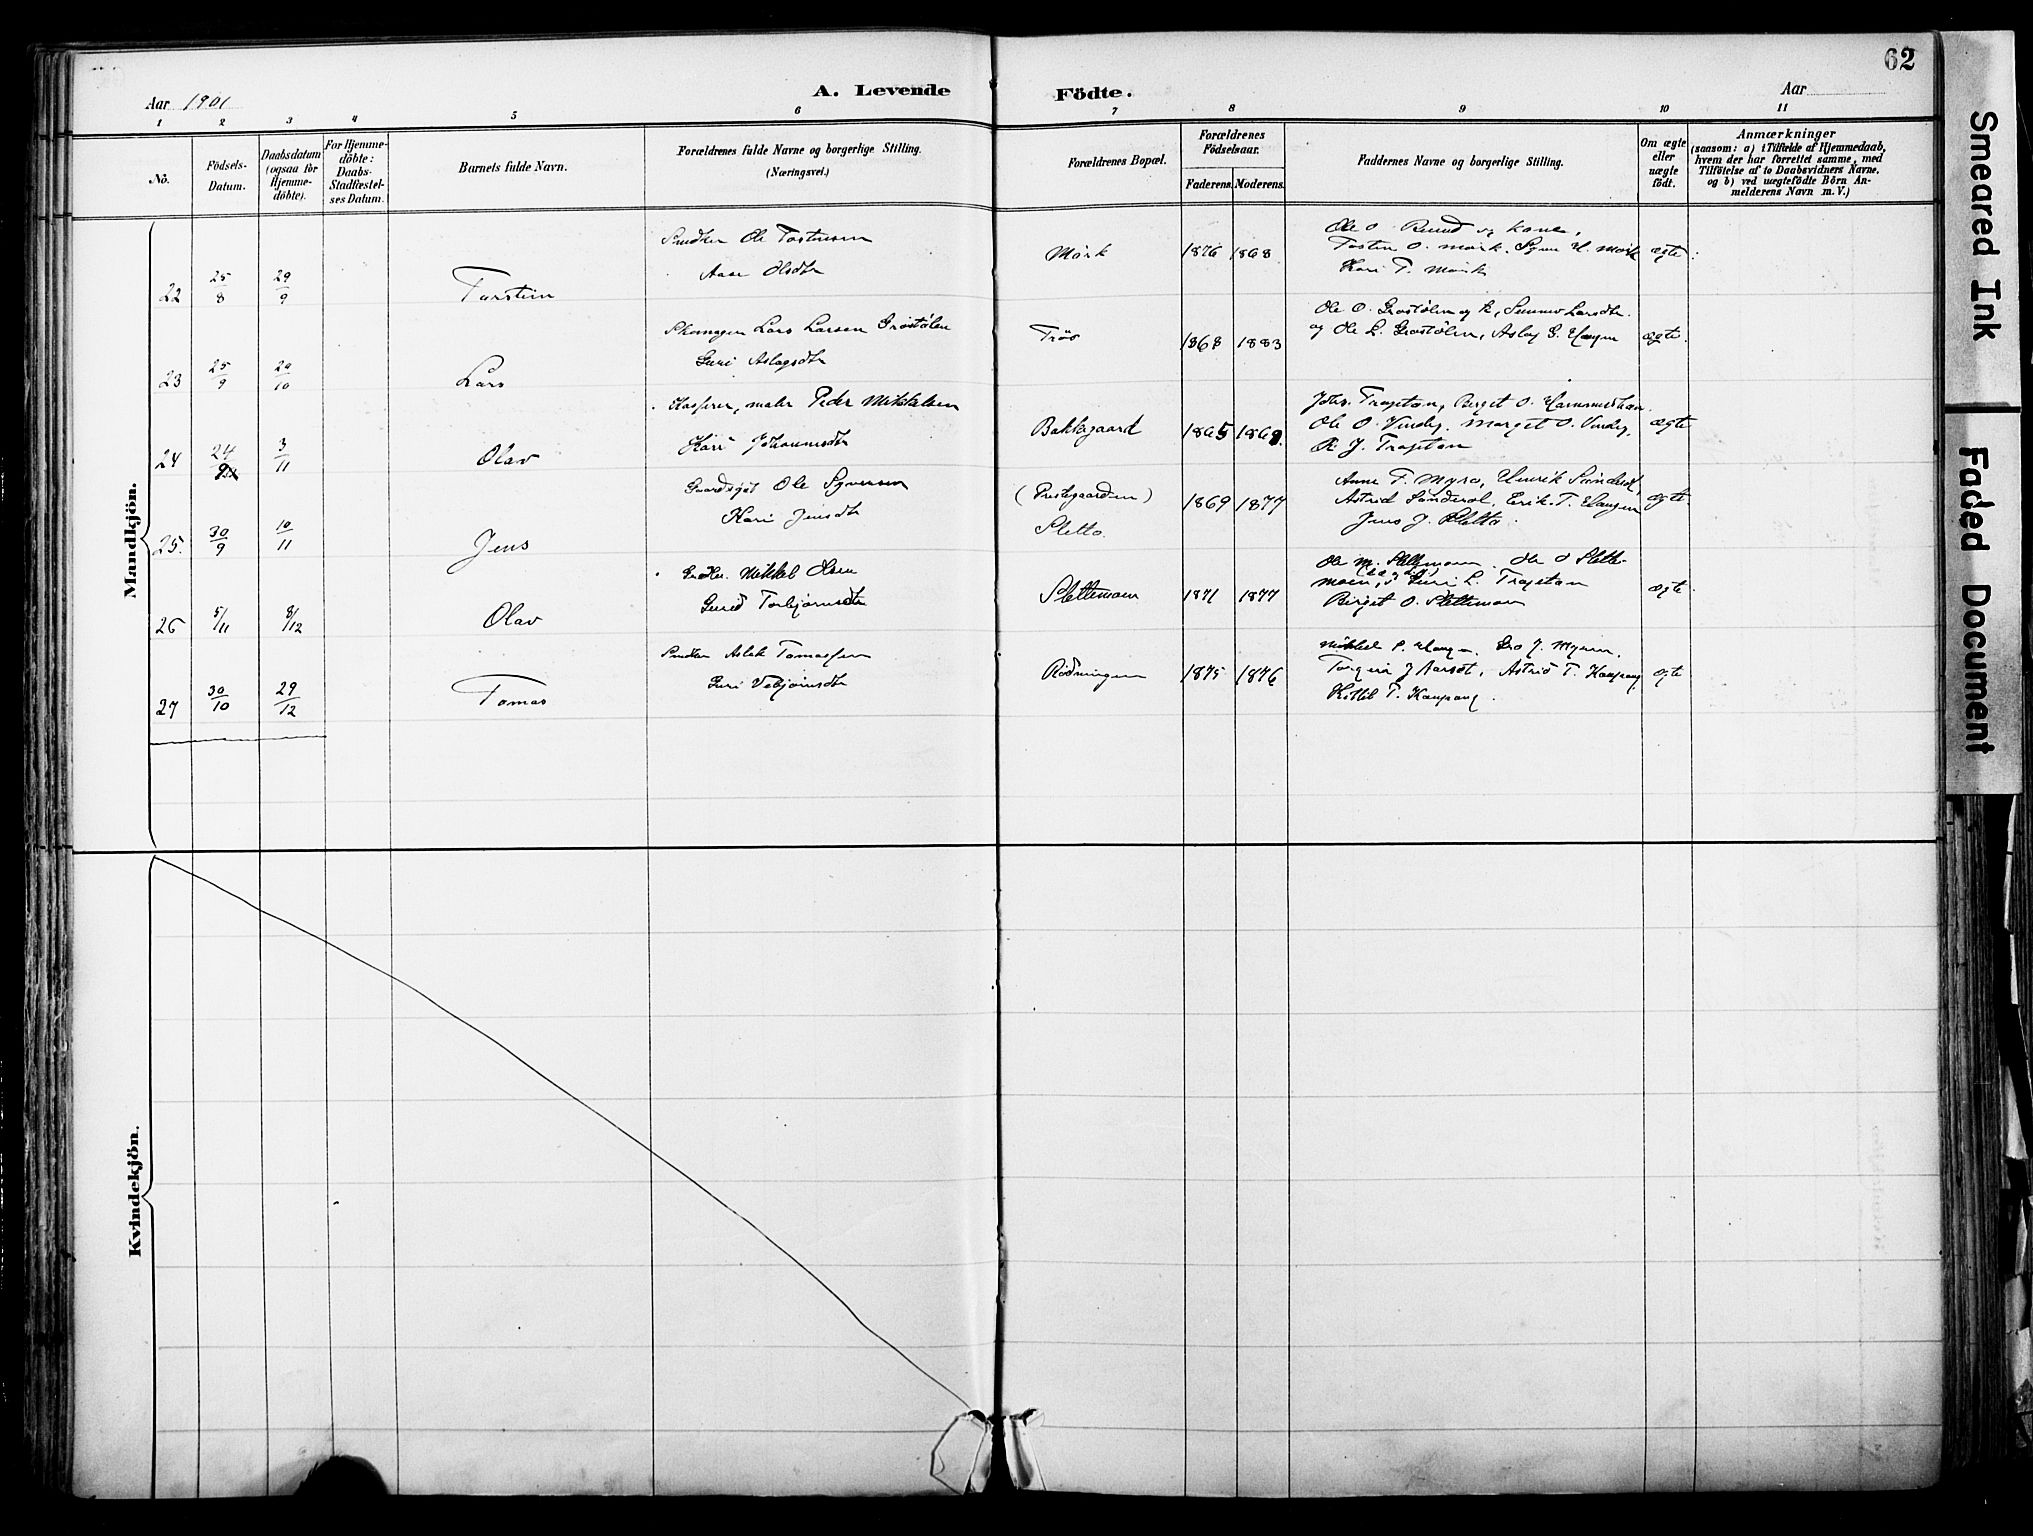 62
Aar 1901
A. Levende
Födte.
Aar
1 2 3 4 5 6 7 8 9 10 11
No.
Födsels-
Datum.
Daabsdatum
(ogsaa for
Hjemme-
döbte).
For Hjemme-
döbte:
Daabs-
Stadfæstel-
ses Datum.
Barnets fulde Navn.
Forældrenes fulde Navne og borgerlige Stilling.
(Næringsvei.)
Forældrenes Bopæl.
Forældrenes
Födselsaar.
Faderens.
Moderens.
Faddernes Navne og borgerlige Stilling.
Om ægte
eller
uægte
födt.
Anmærkninger
(saasom: a) i Tilfælde af Hjemmedaab,
hvem der har forrettet samme, med
Tilföielse af to Daabsvidners Navne,
og b) ved uægtefödte Börn An-
melderens Navn m. V.)
Mandkjön.
22 25/8 29/9 Torstein
Ole Tostensen
Aase Olsdtr
Mørk 1876 1868
Ole O.Ruud og kone,
Tosten O. Mørk. H. Mørk
Kari T. Mørk
ægte.
23 25/9 29/10 Lars
Lars Larsen Grøstølen
Guri Aslagsdtr
Trøo 1868 1883
Ole O. Grøstølen og k, Larsdtr.
og Ole L. Grøstølen, Aslag G. Haugen
ægte.
24 24/9 3/11 Olav
Kasserer, maler Peder Mikkelsen
Kari Johannesdtr
Bakkegaard 1865
Birget O.
Ole O. Vindeg. Marget O. Vindeg.
ægte
25. 30/9 10/11 Jens
Ole Syversen
Kari Jensdtr
(Prestegaarden)
Sletto.
1869 1877
Anne T. Myro, Henrik
Astrid Sønderol, Eerik T. Haugen
Jens J. Sletto.
ægte.
26 5/11 8/12 Olav
Mikkel Olsen
Gurid Torbjørnsdtr
Slettemoen 1871 1877
Ole M. Slettemoen. Ole O Slette-
moen, Guri L.
Birget O. Slettemoen
ægte.
27 30/10 29/12 Tomas
Aslak Tomassen
Guri Vebjørnsdtr
Rødningen 1875 1876
Mikkel P. Haugen. Gro J. Myren.
Astrid T. Kaupang
Kittil T. Kaupang.
ægte
Kvindekjön.
Smeared Ink
Faded Document